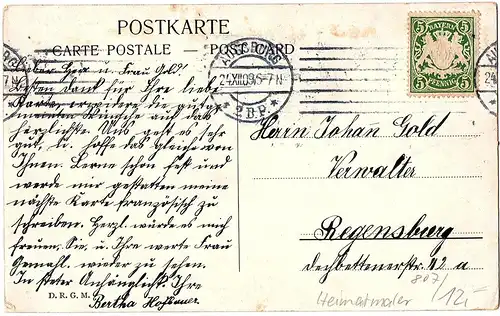 POSTKARTE
CARTE POSTALE — POST CARD
AUGSBURG
24.XII.09.6-7N
* P.D.P. *
BAYERN
5 5
5 5
PFENNIG
Lieber Herr u. Frau Gold!
Besten Dank für Ihre liebe
Karte, erwidere die gut
meinten Wünsche auf das
herzlichste. Uns geht es sehr
gut, u. hoffe das gleiche von
Ihnen. Lerne schon fest und
werde mir gestatten meine
nächste Karte französisch zu
schreiben. Herzl. würde es mich
freuen, Sie, u. Ihre werte Frau
Gemahl. wieder zu sehen.
In steter Anhänglichk. Ihre
Bertha
D. R. G. M.
Herrn Johañ Gold
Verwalter
Regensburg
Dechbettenerstr. 12 a
807
Heimatmaler 12,-